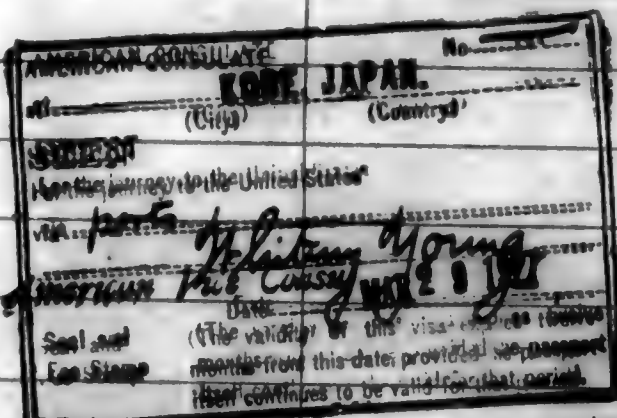 AMERICAN CONSULATE No.
at KOBE, JAPAN.
(City) (Country)
For the journey to the United States
via ports
Whitney Young
American Vice Consul
Date
Seal and (The validity of this visa expires twelve
Fee Stamp months from this date, provided the passport
itself continues to be valid for that period.